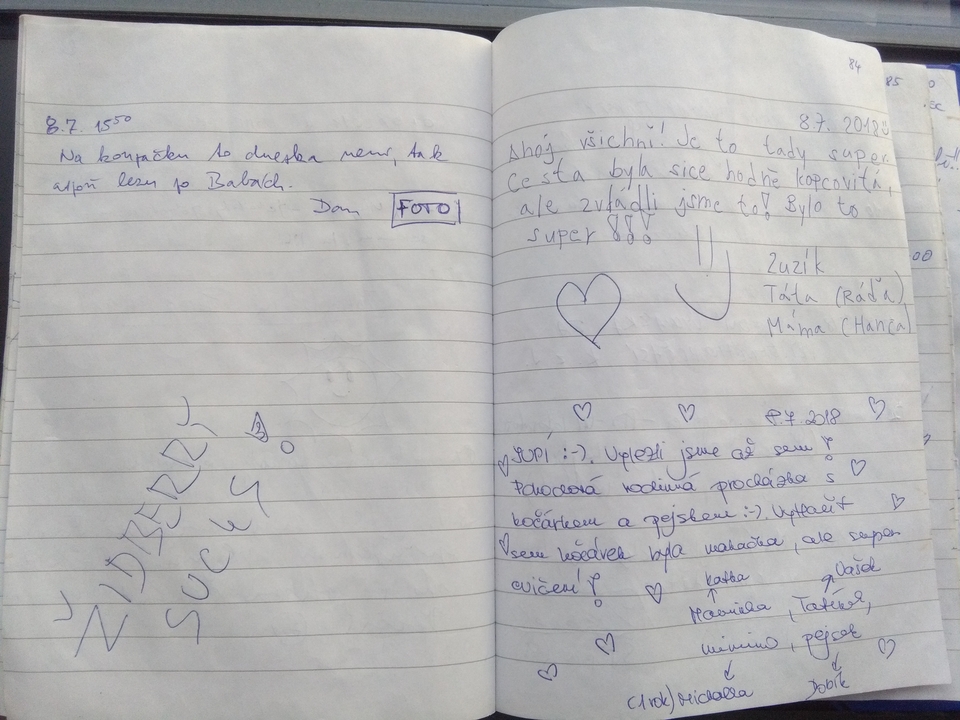 8.7. 15⁵⁰
Na koupačku to dneska není, tak
aspoň lezu po Babách.
Dan FOTO
84
8.7. 2018
Ahoj všichni! Je to tady super.
Cesta byla sice hodně kopcovitá,
ale zvládli jsme to! Bylo to
super !!!
Zuzík
Táta (Ráďa)
Máma (Hanča)
8.7.2018
JUPÍ :-). Vylezli jsme až sem!
Pohodová rodinná procházka s
kočárkem a pejskem :-). Vytlačit
sem kočárek byla makačka, ale super
cvičení!
Katka Vašek
Maminka, Tatínek,
mimino, pejsek
(1 rok) Michalka Dobík
85
00